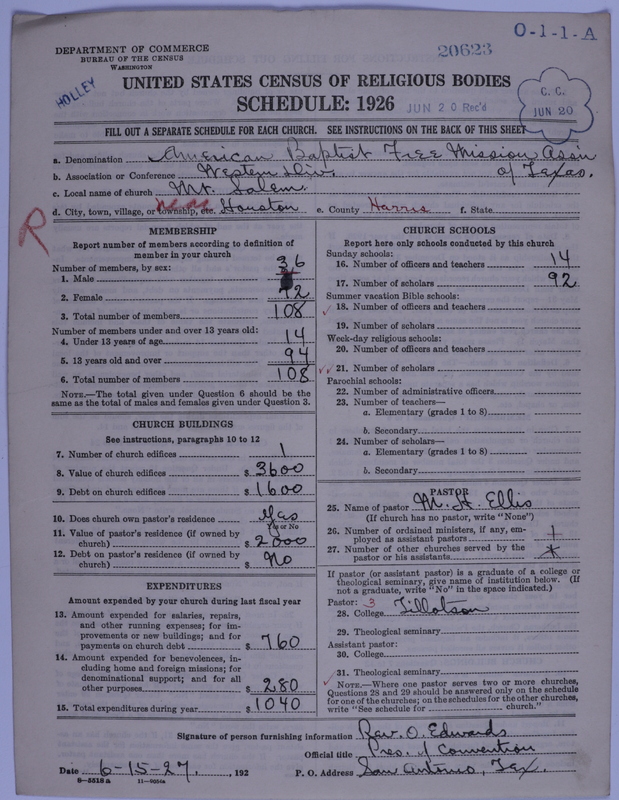 O-1-1-A
20623
DEPARTMENT OF COMMERCE
BUREAU OF THE CENSUS
WASHINGTON
HOLLEY
UNITED STATES CENSUS OF RELIGIOUS BODIES
SCHEDULE: 1926
JUN 20 Rec'd
C. C.
JUN 20
FILL OUT A SEPARATE SCHEDULE FOR EACH CHURCH. SEE INSTRUCTIONS ON THE BACK OF THIS SHEET
a. Denomination American Baptist Free Mission Ass'n
b. Association or Conference Western Div. of Texas.
c. Local name of church Mt. Salem.
d. City, town, village, or township, etc. near Houston e. County Harris f. State
R
MEMBERSHIP
Report number of members according to definition of
member in your church
Number of members, by sex:
1. Male 36
2. Female 72
3. Total number of members 108
Number of members under and over 13 years old:
4. Under 13 years of age 14
5. 13 years old and over 94
6. Total number of members 108
NOTE.—The total given under Question 6 should be the
same as the total of males and females given under Question 3.
CHURCH BUILDINGS
See instructions, paragraphs 10 to 12
7. Number of church edifices 1
8. Value of church edifices $ 3600
9. Debt on church edifices $ 1600
10. Does church own pastor's residence Yas
Yes or No
11. Value of pastor's residence (if owned by
church) $ 2000
12. Debt on pastor's residence (if owned by
church) $ No
EXPENDITURES
Amount expended by your church during last fiscal year
13. Amount expended for salaries, repairs,
and other running expenses; for im-
provements or new buildings; and for
payments on church debt $ 760
14. Amount expended for benevolences, in-
cluding home and foreign missions; for
denominational support; and for all
other purposes $ 280
15. Total expenditures during year $ 1040
CHURCH SCHOOLS
Report here only schools conducted by this church
Sunday schools:
16. Number of officers and teachers 14
17. Number of scholars 92
Summer vacation Bible schools:
18. Number of officers and teachers
19. Number of scholars
Week-day religious schools:
20. Number of officers and teachers
21. Number of scholars
Parochial schools:
22. Number of administrative officers
23. Number of teachers—
a. Elementary (grades 1 to 8)
b. Secondary
24. Number of scholars—
a. Elementary (grades 1 to 8)
b. Secondary
PASTOR
25. Name of pastor M. H. Ellis
(If church has no pastor, write "None")
26. Number of ordained ministers, if any, em-
ployed as assistant pastors 1
27. Number of other churches served by the
pastor or his assistants
If pastor (or assistant pastor) is a graduate of a college or
theological seminary, give name of institution below. (If
not a graduate, write "No" in the space indicated.)
Pastor: 3
28. College Tillotson
29. Theological seminary
Assistant pastor:
30. College
31. Theological seminary
NOTE.—Where one pastor serves two or more churches,
Questions 28 and 29 should be answered only on the schedule
for one of the churches; on the schedules for the other churches,
write "See schedule for church."
Signature of person furnishing information Rev. O. Edwards
Official title Pres. of Convention
Date 6-15-27, 192 P. O. Address San Antonio, Tex.
8—5518 a 11—9654a